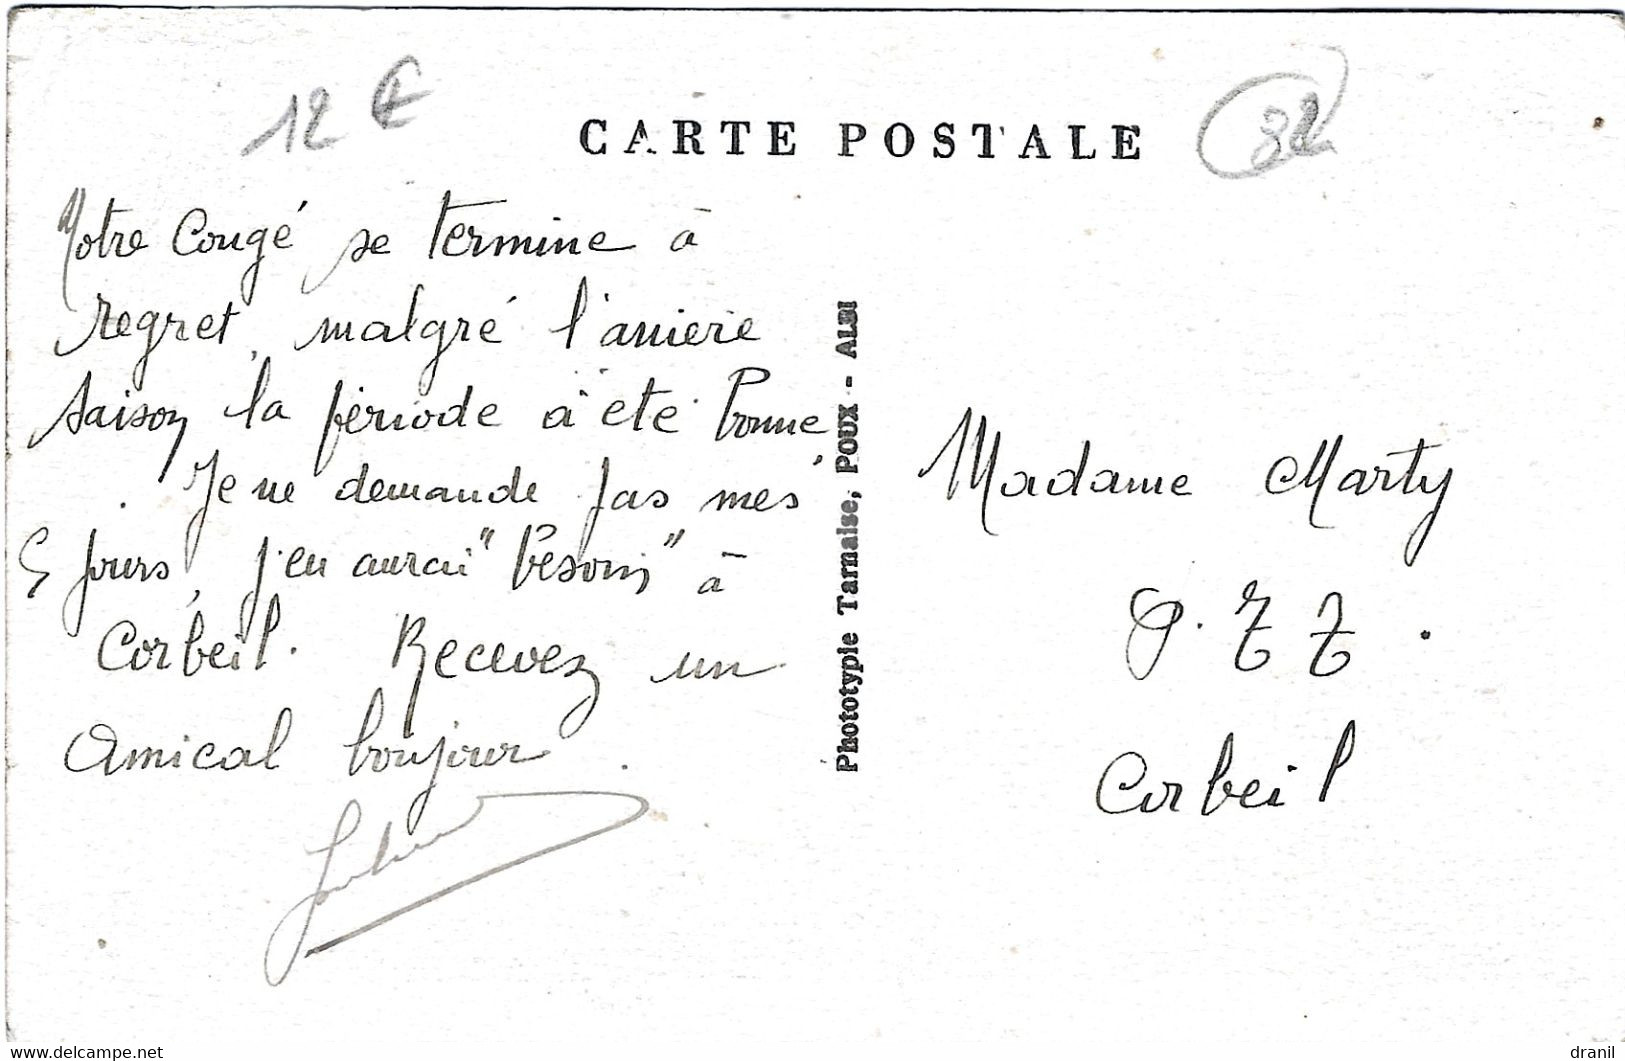 12 €
CARTE POSTALE
82
Notre Congé se termine à
regret, malgré l'arriere
saison la période a été bonne
. Je ne demande pas mes
5 jours, j'en aurai "besoin" à
Corbeil. Recevez un
Amical bonjour.
Phototypie Tarnaise, POUX - ALBI
Madame Marty
P. T T.
Corbeil
www.delcampe.net
dranil